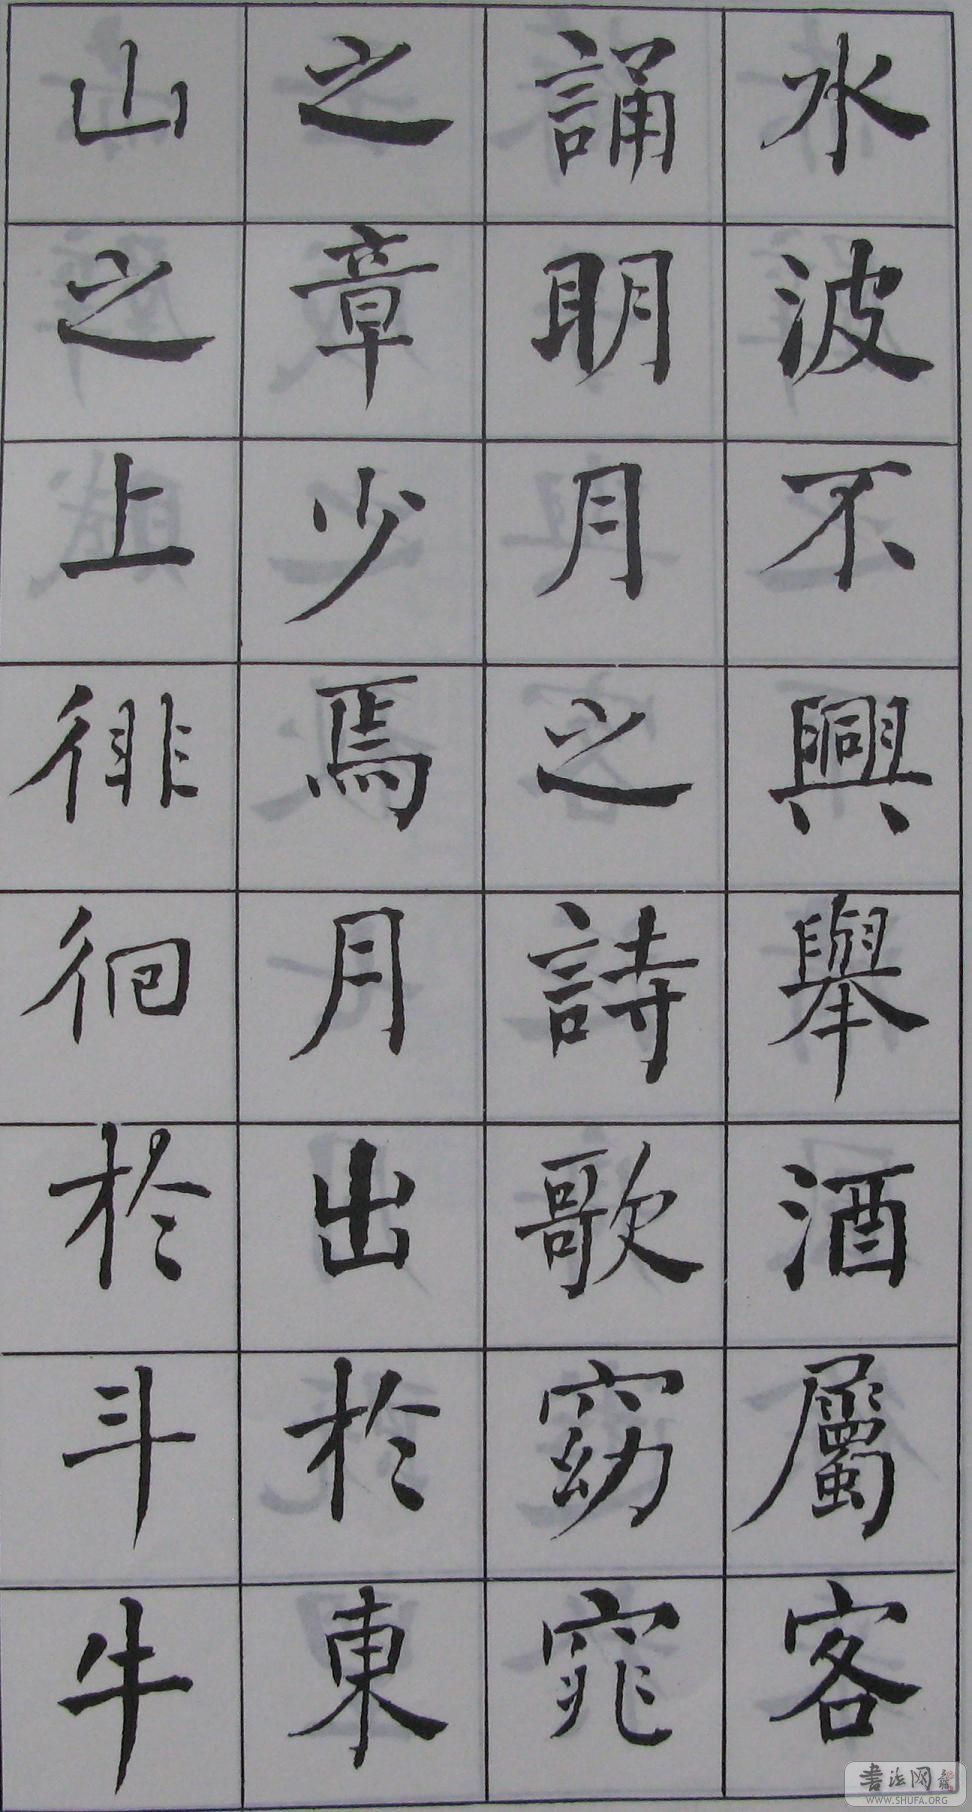 水波不興舉酒屬客
誦明月之詩歌窈窕
之章少焉月出於東
山之上徘徊於斗牛
書法网
WWW.SHUFA.ORG